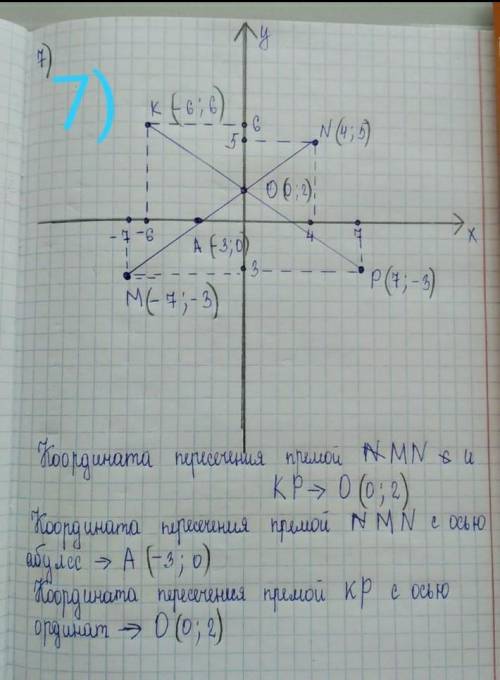 7)
7)
y
K (-6; 6)
6
5
N (4; 5)
O (0; 2)
-7 -6
A (-3; 0)
4
7
x
3
M (-7; -3)
P (7; -3)
Координата пересечения премой MN и
KP → O (0; 2)
Координата пересечения премой MN с осью
абулсс → A (-3; 0)
Координата пересечения премой KP с осью
ординат → O (0; 2)